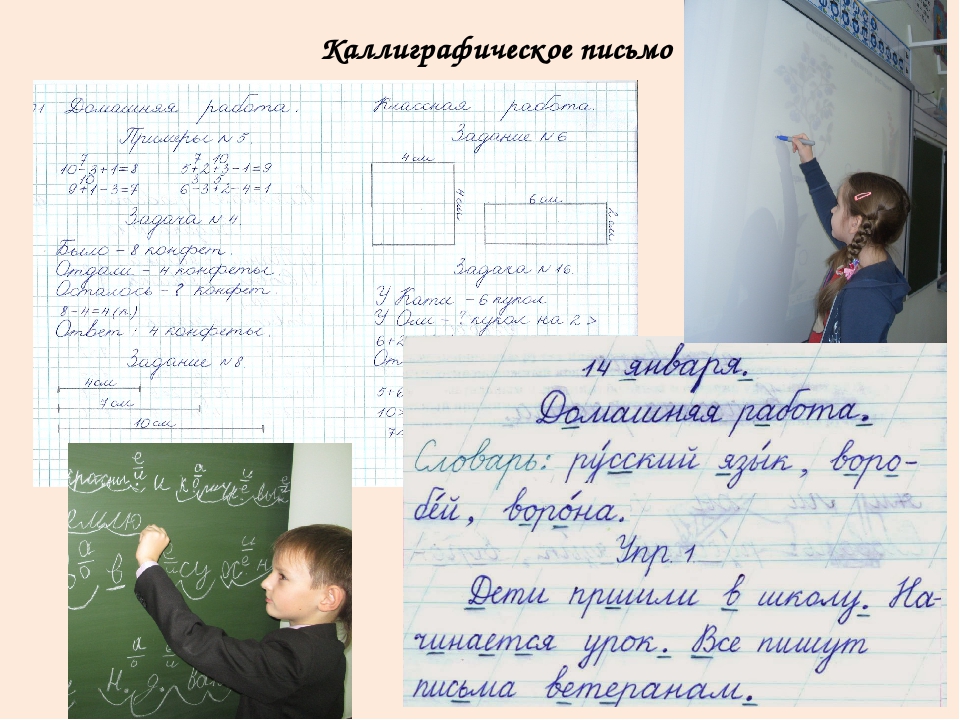 Каллиграфическое письмо
Домашняя работа.
Примеры №5.
7
10-3+1=8
10
9+1-3=7
7 10
5+2+3-1=9
3 5
6-3+2-4=1
Задача №4.
Было – 8 конфет.
Отдали – 4 конфеты.
Осталось – ? конфет.
8-4=4(к)
Ответ: 4 конфеты.
Задание №8.
4см
7см
10см
Классная работа.
Задание №6
4см
4см
6см
2см
Задача №16.
У Кати – 6 кукол
У Оли – ? кукол на 2 >
6+2
От
5+6
10>
14 января.
Домашняя работа.
Словарь: ру́сский язы́к, воро-
бе́й, воро́на.
Упр. 1
Дети пришли в школу. На-
чинается урок. Все пишут
письма ветеранам.